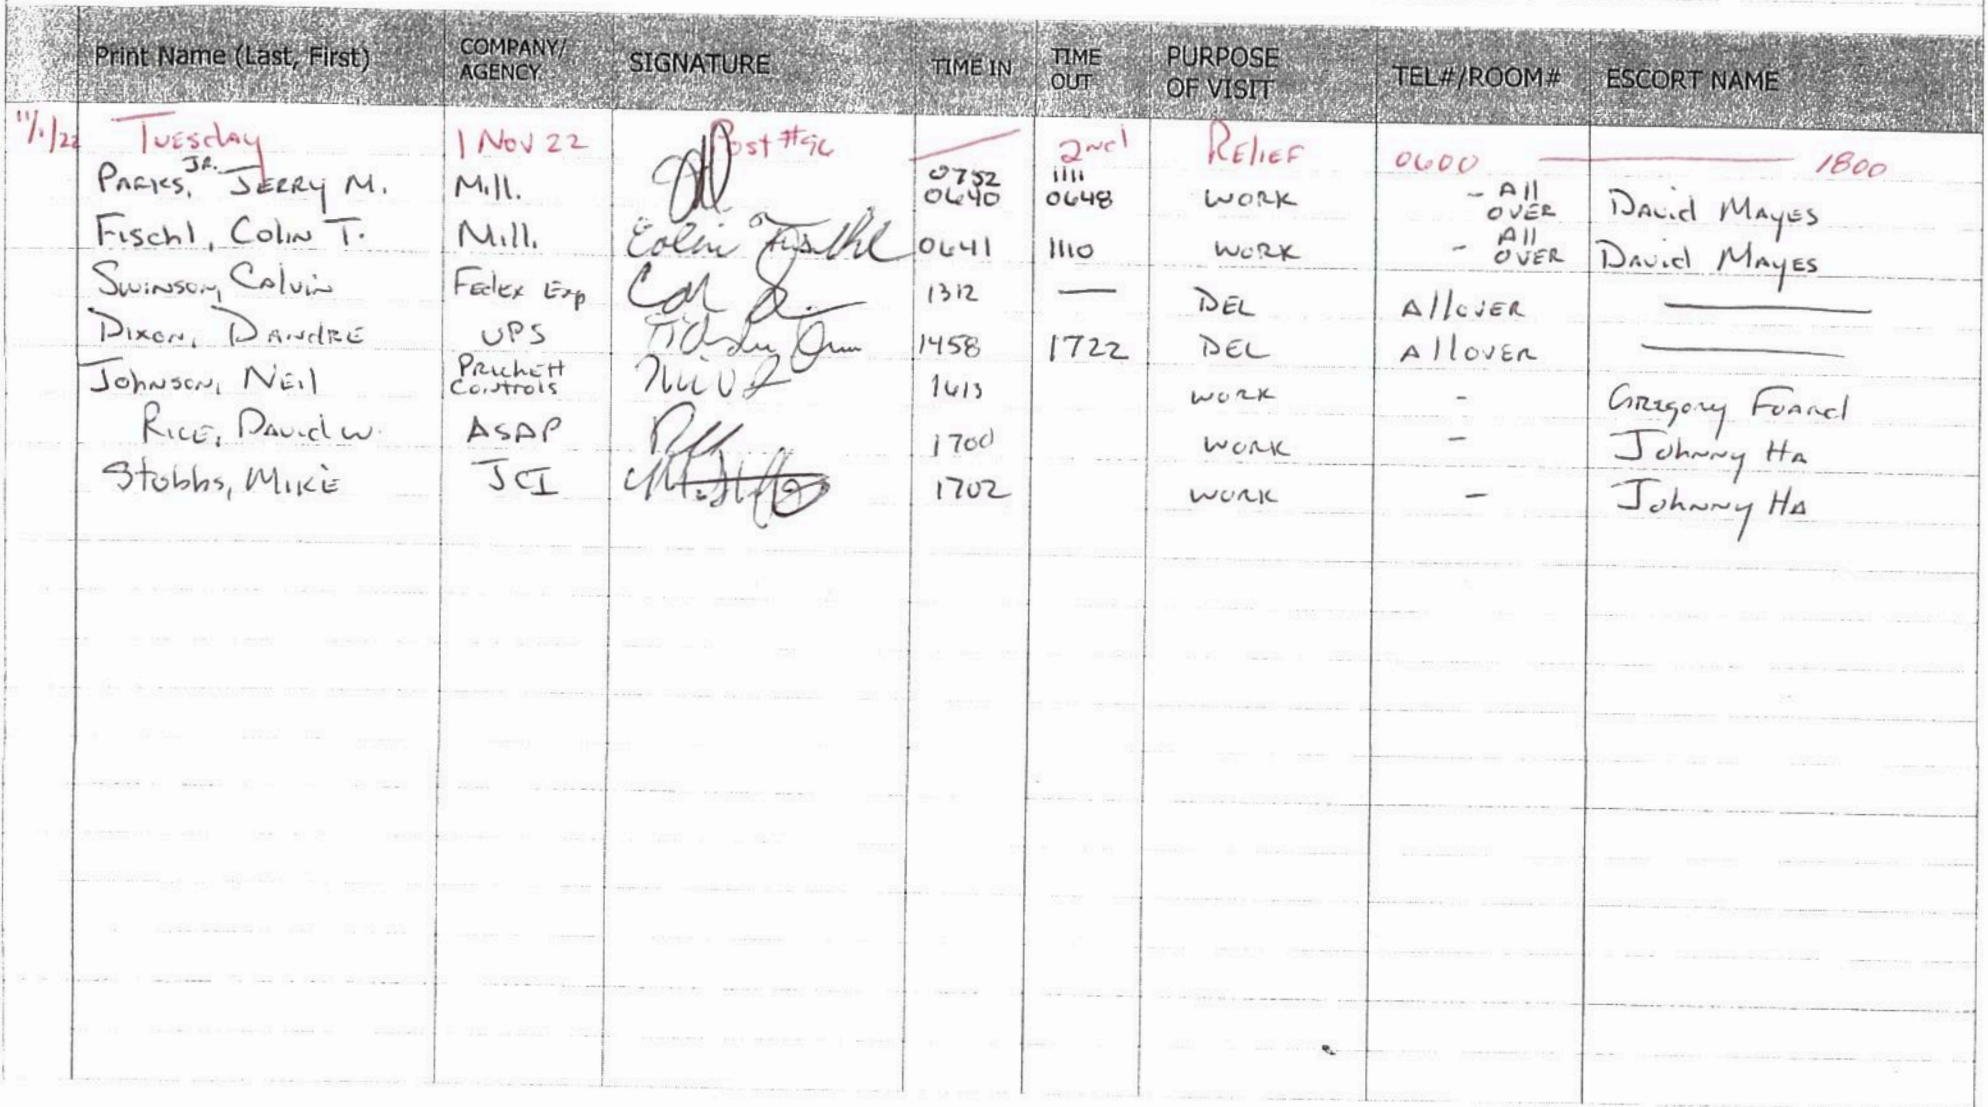 Print Name (Last, First) COMPANY/ AGENCY SIGNATURE TIME IN TIME OUT PURPOSE OF VISIT TEL#/ROOM# ESCORT NAME
11/1/22 Tuesday 1 Nov 22 Post #96 2nd RELIEF 0600 — 1800
JR. 0752 1111
PARKS, JERRY M. Mill. 0640 0648 WORK - All OVER David MAYES
Fischl, Colin T. Mill. Colin Fischl 0641 1110 WORK - All OVER David MAYES
Swinson, Calvin FedEx Exp 1312 — DEL AllOVER —
Dixon, DANdRE UPS 1458 1722 DEL AllOVER —
Johnson, Neil Prichett Controls 1613 WORK - Gregory
RICE, David W. ASAP 1700 WORK - Johnny HA
Stobbs, MIKE JCI 1702 WORK - Johnny HA